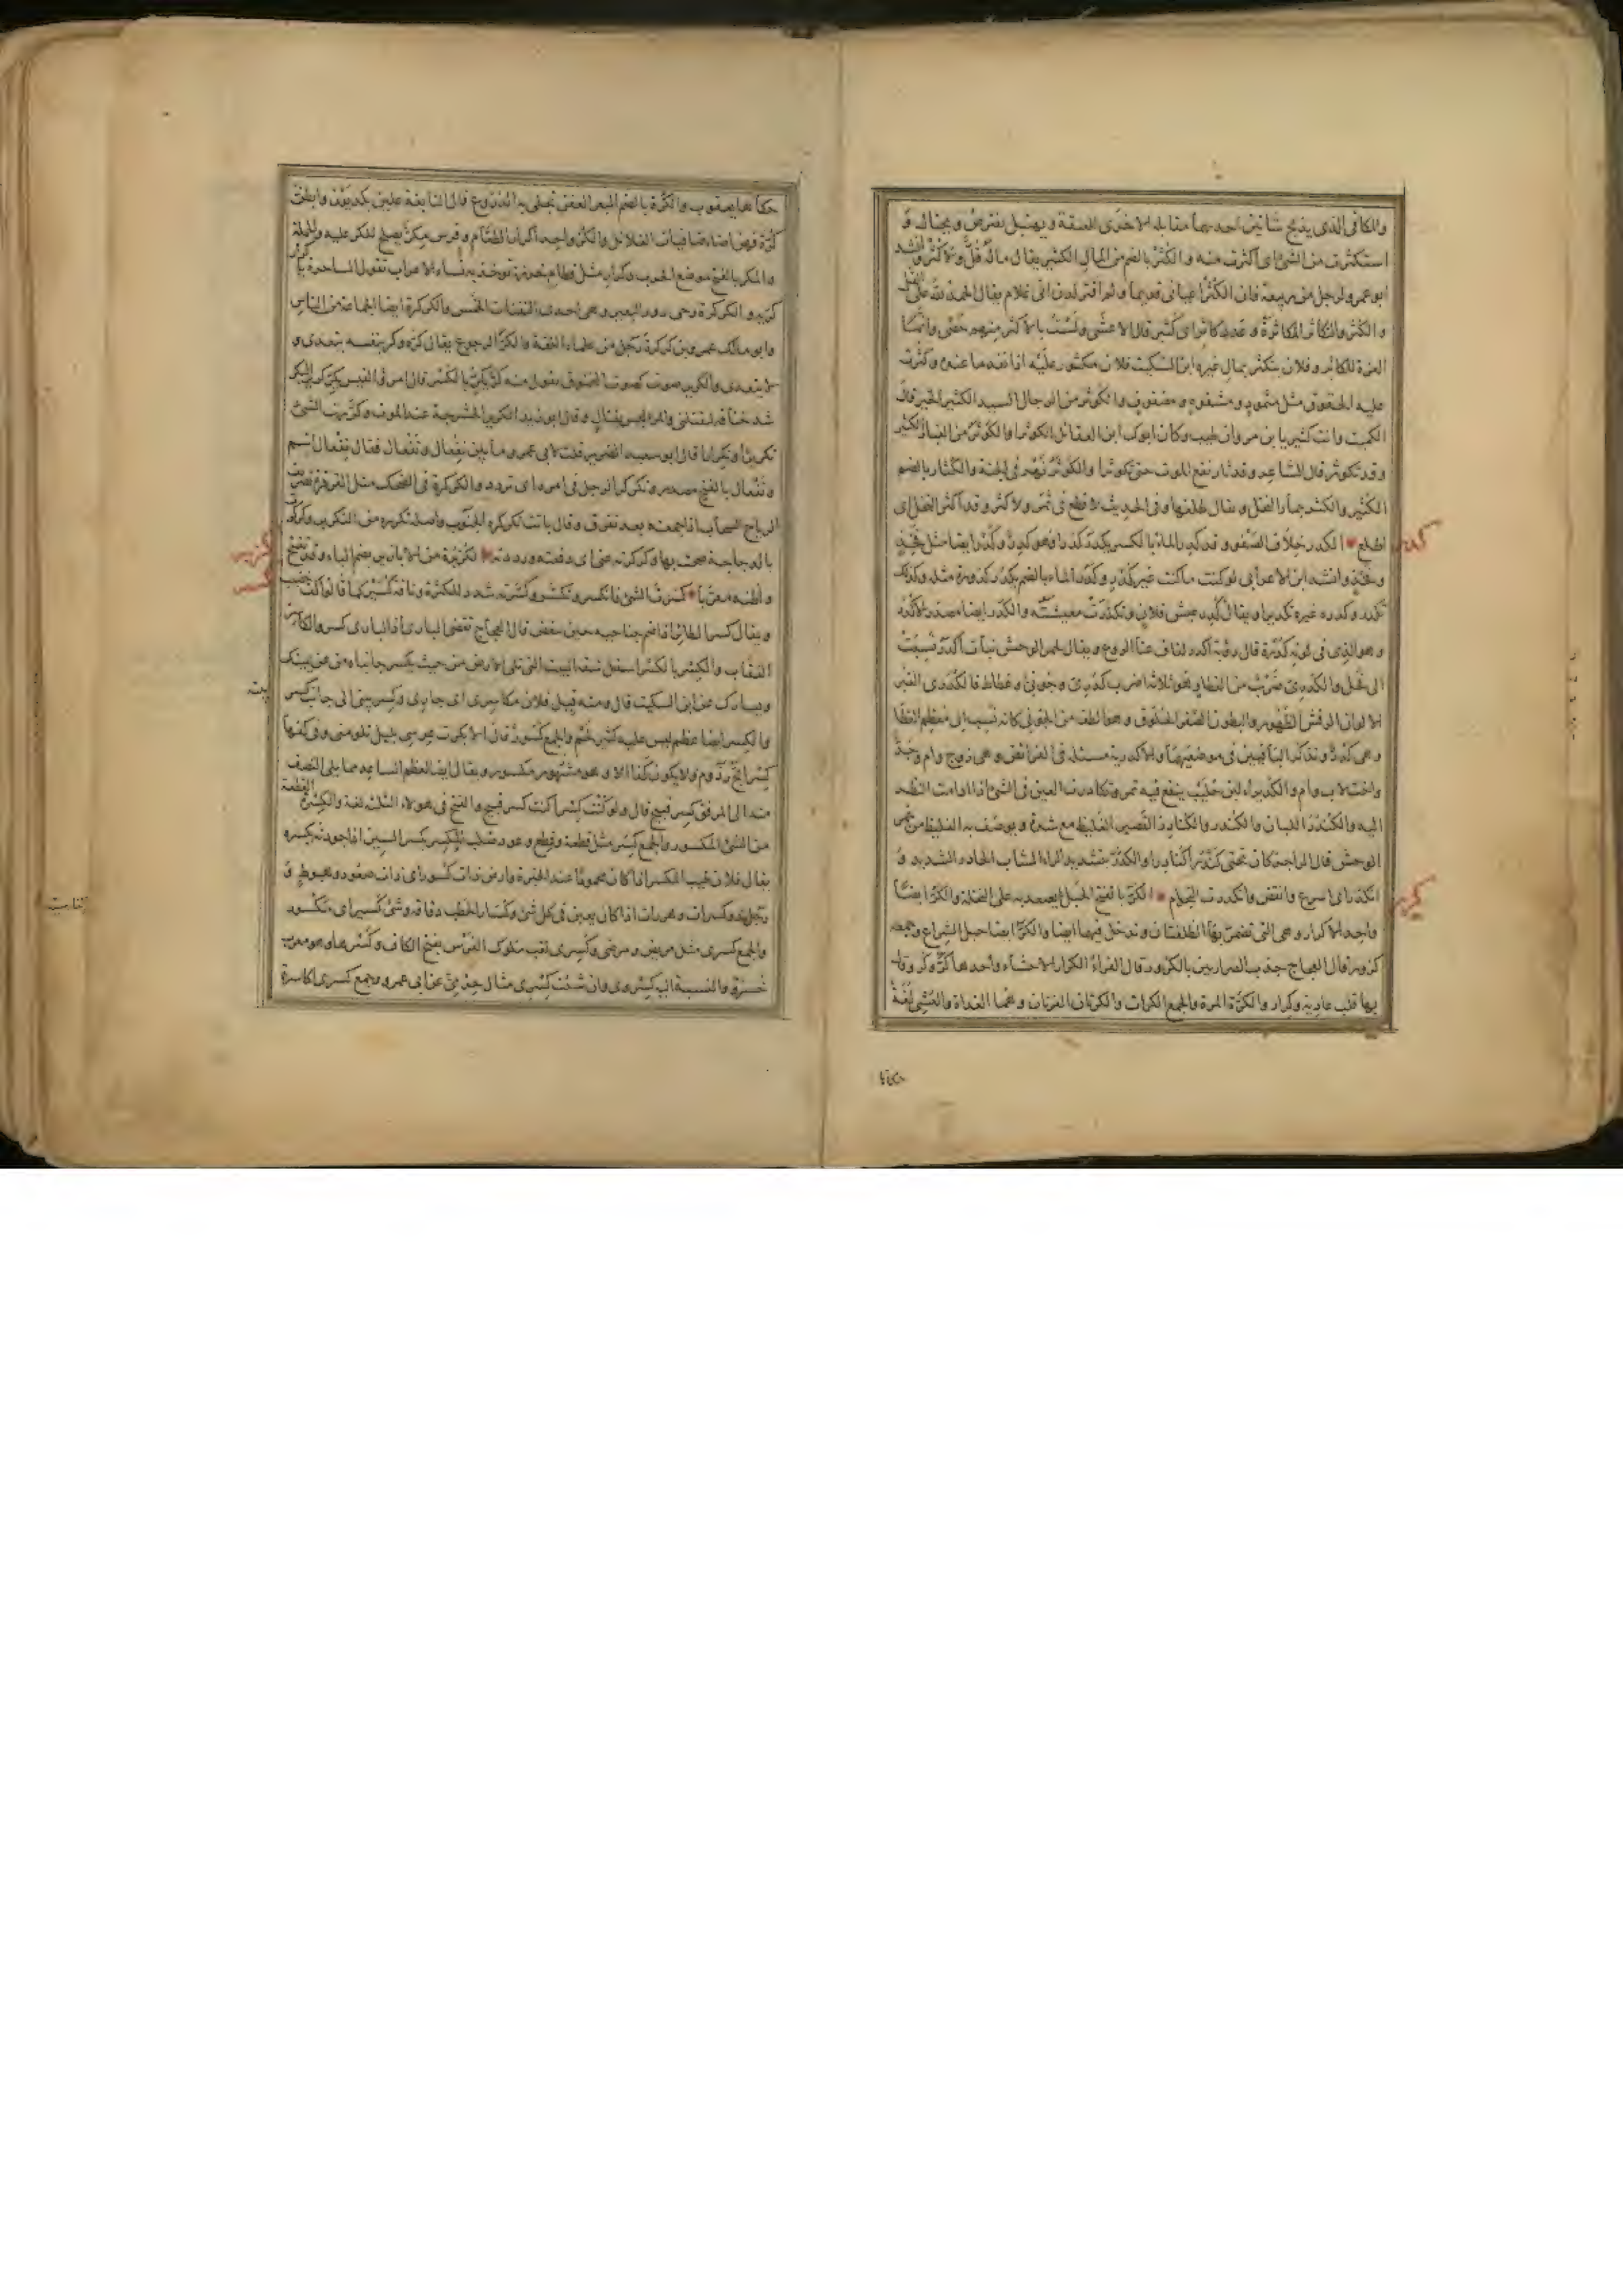 والمكافئ الذي يذبح شاتين احدهما مقابلة الاخرى للعقيقة ويقبل بقرض
استكثرت من الشئ اى اكثرت منه والكثر بالضم من المال الكثير يقال ماله قل ولا كثر وانشد
ابو عمرو لرجل من ربيعة فان الكثر اعياني قديما ولم اقتر لدن انى غلام يقال الحمد لله على القل
و الكثر والتكاثر المكاثرة وعدد كاثر اى كثير قال الاعشى ولست بالاكثر منهم حصى وانما
العزة للكاثر وفلان يتكثر بمال غيره ابن السكيت فلان مكثور عليه اذا نفد ما عنده وكثرت
عليه الحقوق مثل مثمود ومشفوه ومضفوف والكوثر من الرجال السيد الكثير الخير قال
الكميت وانت كثير يا بن مروان طيب وكان ابوك ابن العقائل كوثرا والكوثر من الغبار الكثير
وقد تكوثر قال الشاعر وقد ثار نقع الموت حتى تكوثرا والكوثر نهر فى الجنة والكثار بالضم
الكثير والكثر جمار النخل ويقال طلعها وفى الحديث لا قطع فى ثمر ولا كثر وقد اكثر النخل اى
اطلع الكدر خلاف الصفو وقد كدر الماء بالكسر يكدر كدرا فهو كدر وكدر ايضا مثل فخذ
وفخذ وانشد ابن الاعرابى لو كنت ماء كنت غير كدر وكدر الماء بالضم يكدر كدورة مثله وكذلك
تكدر وكدره غيره تكديرا ويقال كدر عيش فلان وتكدرت معيشته والكدر ايضا مصدر الاكدر
وهو الذى فى لونه كدرة قال رؤبة اكدر لفاف عناد الروغ ويقال لحمر الوحش بنات اكدر نسبت
الى فحل والكدرى ضرب من القطا وهو ثلاثة اضرب كدرى وجونى وغطاط فالكدرى الغبر
الالوان الرقش الظهور والبطون الصفر الحلوق وهو الطف من الجونى كانه نسب الى معظم القطا
وهى كدر ونذكر الباقيين فى موضعيهما والاكدرية مسئلة فى الفرائض وهى زوج وام وجد
واخت لاب وام والكديراء لبن حليب ينقع فيه تمر وتكادرت العين فى الشئ اذا ادامت النظر
اليه والكندر اللبان والكندر والكنادر القصير الغليظ مع شدة ويوصف به الغليظ من حمر
الوحش قال الراجز كان تحتى كندرا كنادرا والكدر بتشديد الراء الشاب الحادر الشديد و
انكدر اى اسرع وانقض وانكدرت النجوم الكر بالفتح الحبل يصعد به على النخلة والكر ايضا
واحد الاكرار وهى التى تضم بها الظلفتان وتدخل فيهما ايضا والكر ايضا حبل الشراع وجمعه
كرور قال العجاج جذب الصراريين بالكرور وقال الفراء الكرار الاحشاء واحدها كر وكر وقال
بها قلب عادية وكرار والكرة المرة والجمع الكرات والكرتان القرتان وهما الغداة والعشى لغة
كدر
كرر
حكاها
حكاها يعقوب والكرة بالضم البعر العفن تجلى به الدروع قال النابغة علين بكديون وابطن
كرة فهن اضاء صافيات الغلائل والكر واحد اكرار الطعام وفرس مكر يصلح للكر عليه والحملة
والمكر بالفتح موضع الحرب وكرار مثل قطام خرزة توخذ بها نساء الاعراب تقول الساحرة يا كرار
كريه والكركرة رحى زور البعير وهى احدى الثفنات الخمس والكركرة ايضا الجماعة من الناس
وابو مالك عمرو بن كركرة رجل من علماء اللغة والكر الرجوع يقال كره وكر بنفسه يتعدى و
لا يتعدى والكرير صوت كصوت المخنوق تقول منه كر يكر بالكسر قال امرؤ القيس يكر كرير البكر
شد خناقه ليقتلنى والمرء ليس بقتال وقال ابو زيد الكرير الحشرجة عند الموت وكررت الشئ
تكريرا وتكرارا قال ابو سعيد الضرير قلت لابى عمرو ما بين تفعال وتفعال فقال تفعال اسم
وتفعال بالفتح مصدر وتكركر الرجل فى امره اى تردد والكركرة فى الضحك مثل القرقرة
الرياح السحاب اذا جمعته بعد تفرق وقال باتت تكركره الجنوب واصله تكرره من التكرير وكركرت
بالدجاجة صحت بها وكركرته عنى اى دفعته ورددته الكزبرة من الابازير بضم الباء وقد تفتح
واظنه معربا كسرت الشئ فانكسر وتكسر وكسرته شدد للكثرة وناقة كسير كما قالوا كف خضيب
ويقال كسر الطائر اذا ضم جناحيه حين ينقض قال العجاج تقضى البازى اذا البازى كسر والكاسر
العقاب والكسر بالكسر اسفل شقة البيت التى تلى الارض من حيث يكسر جانباه من عن يمينك
ويسارك عن ابن السكيت قال ومنه قيل فلان مكاسرى اى جارى وكسر بيتى الى جانب كسر
بيته
والكسر ايضا عظم ليس عليه كثير لحم والجمع كسور قال الا بكرت عرسى بليل تلومنى وفى كفها
كسر ابح رذوم ولا يكون كذا الا وهو مشهور مكسور ويقال ايضا لعظم الساعد مما يلى النصف
منه الى المرفق كسر قبيح قال ولو كنت كسرا كنت كسر قبيح والفتح فى هولاء الثلاث لغة والكسرة القطعة
من الشئ المكسور والجمع كسر مثل قطعة وقطع وعود صلب المكسر بكسر السين اذا جودته بكسره
يقال فلان طيب المكسر اذا كان محمودا عند الخبرة وارض ذات كسور اى ذات صعود وهبوط و
رجل ذو كسرات وهدرات اذا كان يغبن فى كل شئ وكسار الحطب دقاقه وشئ كسير اى مكسور
والجمع كسرى مثل مريض ومرضى وكسرى لقب ملوك الفرس بفتح الكاف وكسرها وهو معرب
خسرو والنسبة اليه كسروى وان شئت كسرى مثال جدى عن ابى عمرو وجمع كسرى اكاسرة
كزبر
كسر